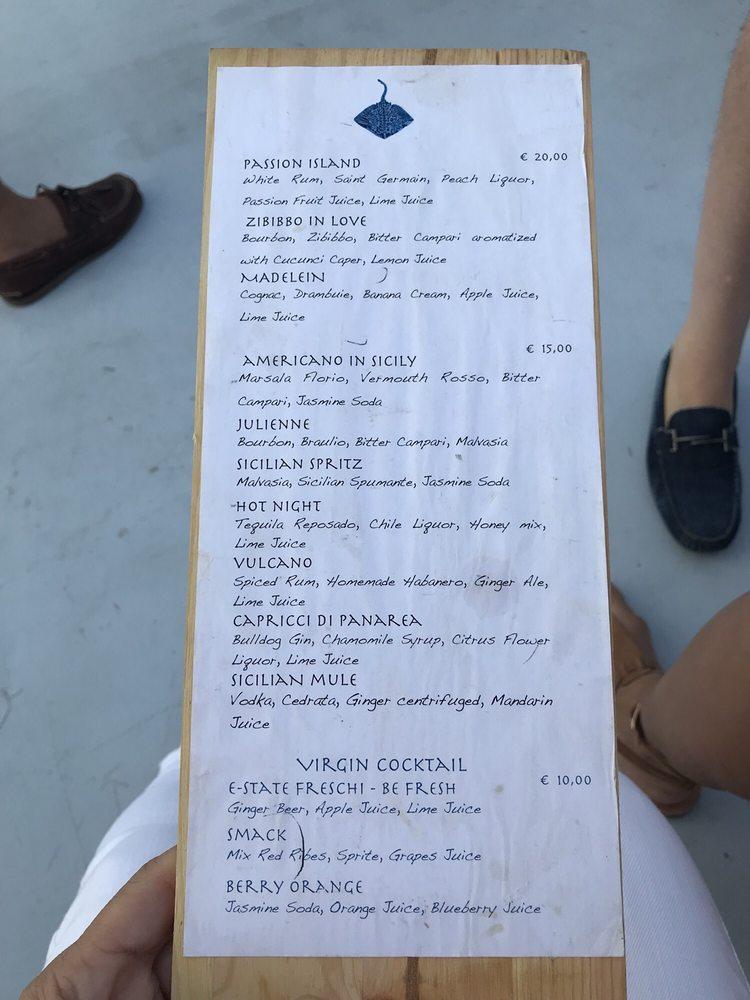 € 20,00
PASSION ISLAND
White Rum, Saint Germain, Peach Liquor,
Passion Fruit Juice, Lime Juice
ZIBIBBO IN LOVE
Bourbon, Zibibbo, Bitter Campari aromatized
with Cucunci Caper, Lemon Juice
MADELEIN
Cognac, Drambuie, Banana Cream, Apple Juice,
Lime Juice
€ 15,00
AMERICANO IN SICILY
Marsala Florio, Vermouth Rosso, Bitter
Campari, Jasmine Soda
JULIENNE
Bourbon, Braulio, Bitter Campari, Malvasia
SICILIAN SPRITZ
Malvasia, Sicilian Spumante, Jasmine Soda
HOT NIGHT
Tequila Reposado, Chile Liquor, Honey mix,
Lime Juice
VULCANO
Spiced Rum, Homemade Habanero, Ginger Ale,
Lime Juice
CAPRICCI DI PANAREA
Bulldog Gin, Chamomile Syrup, Citrus Flower
Liquor, Lime Juice
SICILIAN MULE
Vodka, Cedrata, Ginger centrifuged, Mandarin
Juice
VIRGIN COCKTAIL
€ 10,00
E-STATE FRESCHI - BE FRESH
Ginger Beer, Apple Juice, Lime Juice
SMACK
Mix Red Ribes, Sprite, Grapes Juice
BERRY ORANGE
Jasmine Soda, Orange Juice, Blueberry Juice